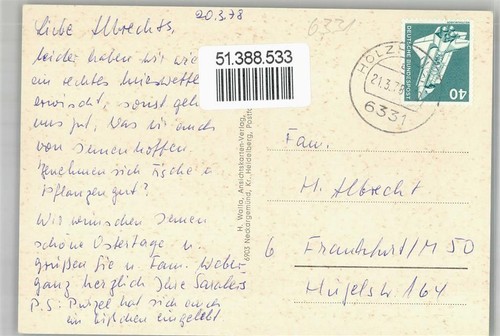 20.3.78
Liebe Albrechts,
leider haben wir wie
ein rechtes Mieswette
erwischt, sonst geht
uns gut, was wir auch
von Ihnen hoffen.
Benehmen sich Fische u
Pflanzen gut?
Wir wünschen Ihnen
schöne Ostertage u.
grüßen Sie u. Fam.
ganz herzlich Ihre
P.S. Purzel hat sich auch
ein bißchen eingelebt
51.388.533
H. Walla, Ansichtskarten-Verlag,
6903 Neckargemünd, Kr. Heidelberg, Postf
6331
HOLZH
21.3.78
6331
DEUTSCHE BUNDESPOST
40
Fam.
H. Albrecht
6 Frankfurt/M 50
Hügelstr. 164